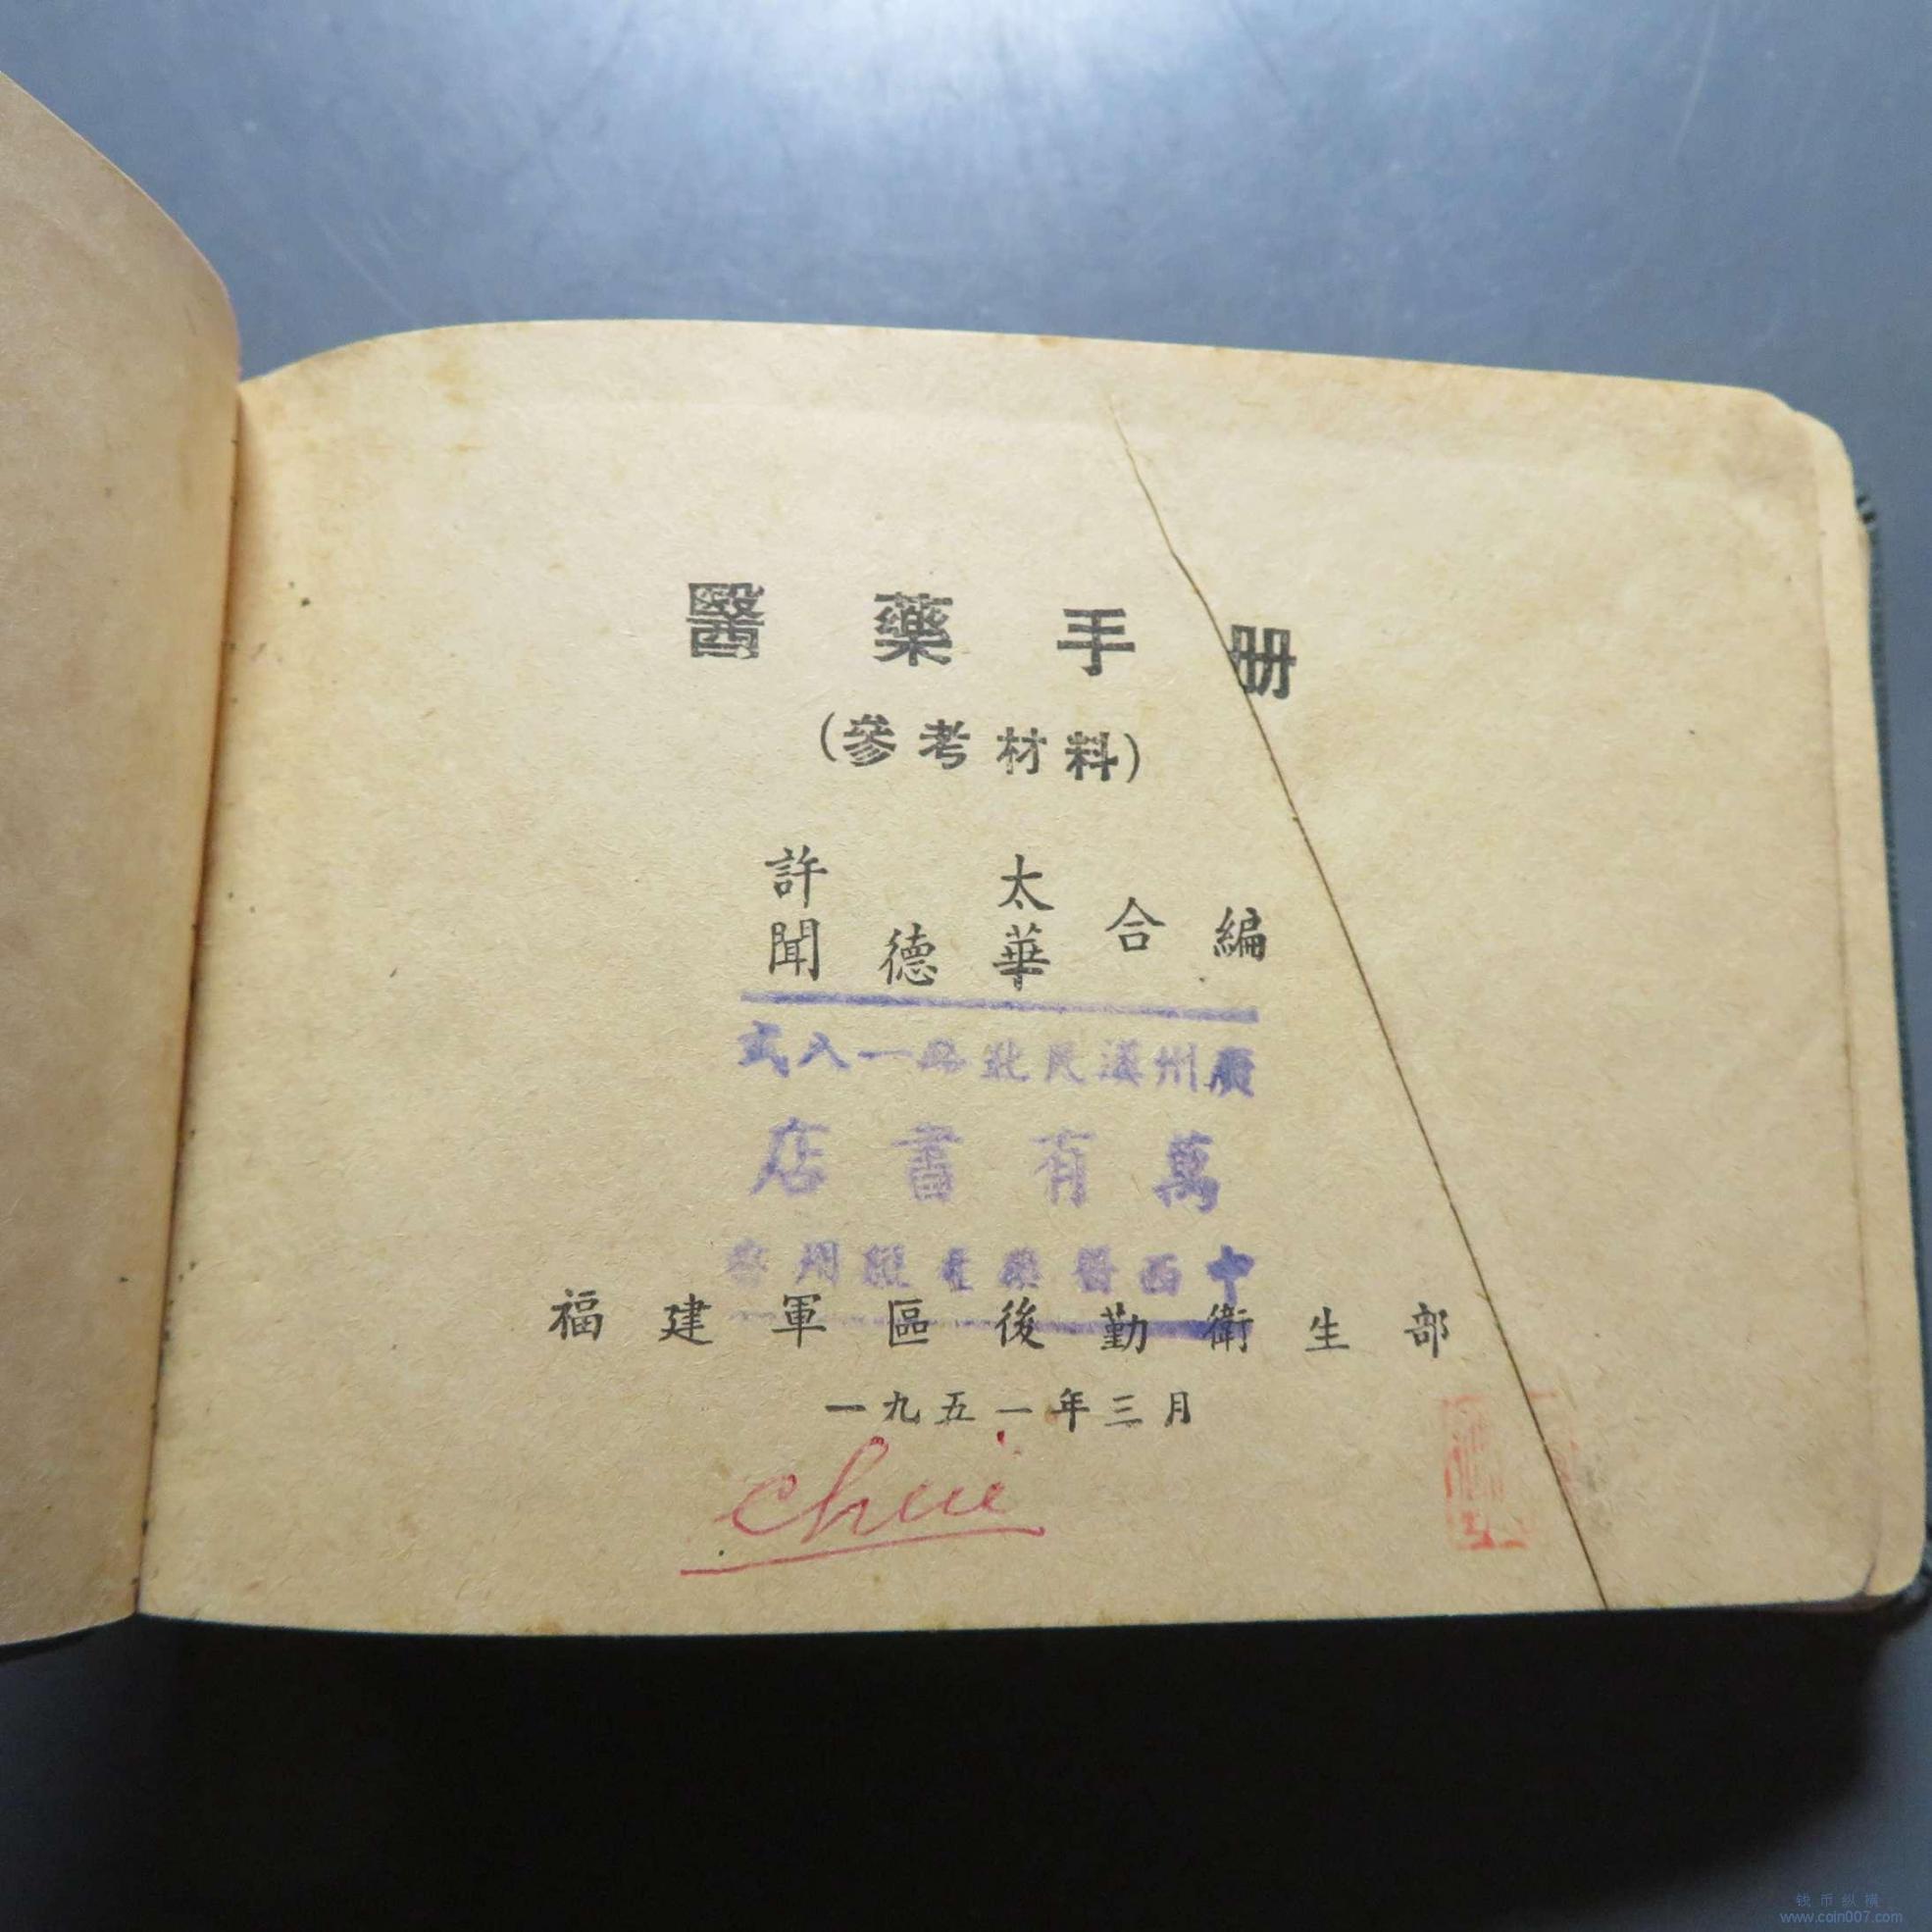 醫藥手册
(參考材料)
許太
聞德華
合編
廣州漢民北路一八弍
萬有書店
中西醫藥書
福建軍區後勤衛生部
一九五一年三月
chui
钱币纵横
www.coin007.com